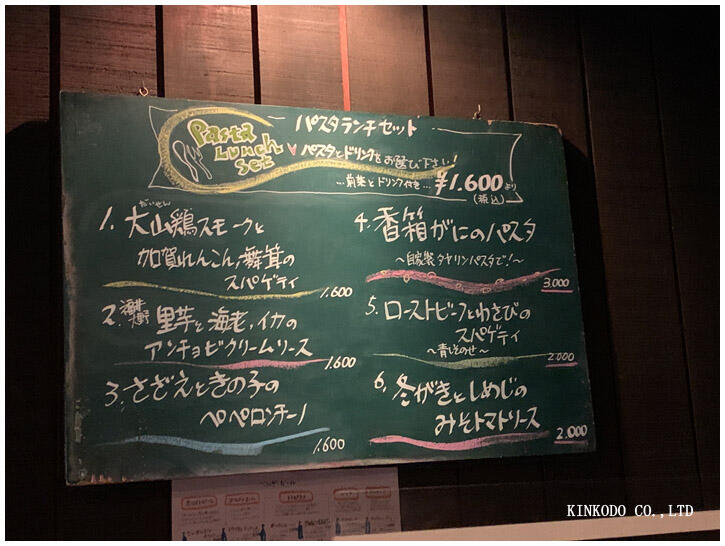 Pasta
Lunch
Set
パスタランチセット
パスタとドリンクをお選び下さい!
…前菜とドリンク付き… ¥1.600より
(税込)
だいせん
1. 大山鶏スモークと
加賀れんこん、舞茸の
スパゲティ
1.600
2. 里芋と海老、イカの
アンチョビクリームソース
1.600
3. さざえときの子の
ペペロンチーノ
1.600
4. 香箱がにのパスタ
〜自家製タヤリンパスタで!〜
3.000
5. ローストビーフとわさびの
スパゲティ
〜青じそのせ〜
2.000
6. 冬がきとしめじの
みそトマトソース
2.000
KINKODO CO.,LTD